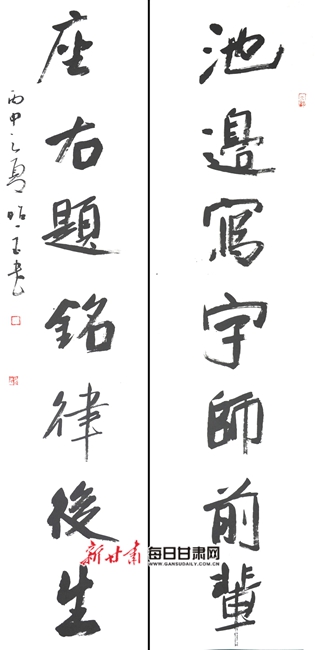 池邊寫字師前輩
座右題銘律後生
丙申之夏
新甘肃
每日甘肃网
WWW.GANSUDAILY.COM.CN